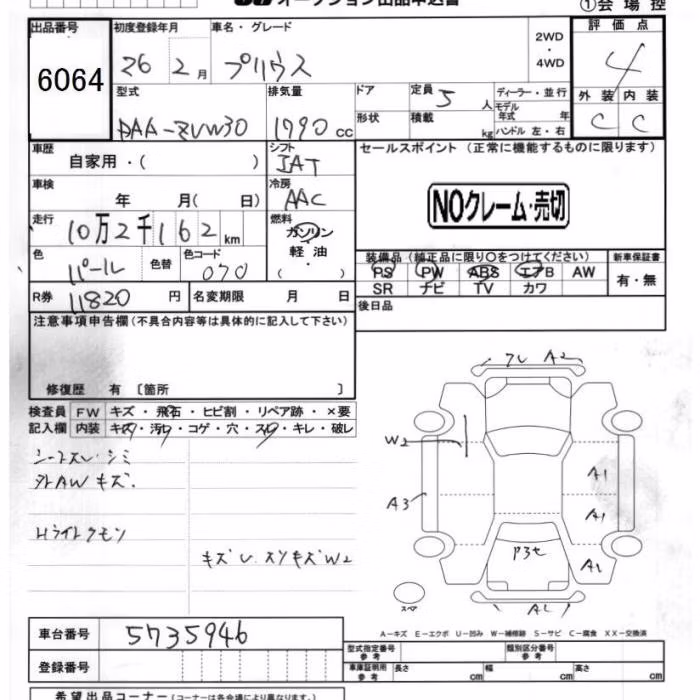 オークション出品申込書
①会場控
出品番号
6064
初度登録年月
車名・グレード
26 2月 プリウス
2WD
・
4WD
評価点
4
外装 内装
C C
型式
DAA-ZVW30
排気量
1790 cc
ドア
形状
定員 5 人
積載 kg
ディーラー・並行
モデル年式 年
ハンドル 左・右
車歴
自家用・( )
シフト
IAT
車検
年 月( 日)
冷房
AAC
走行
10万2千162 km
燃料
ガソリン
軽油
( ・ )
色
パール
色替
色コード
070
R券
11820 円
名変期限 月 日
セールスポイント (正常に機能するものに限ります)
NOクレーム・売切
装備品 (純正品に限り○をつけてください)
PS PW ABS エアB AW
SR ナビ TV カワ
新車保証書
有・無
後日品
注意事項申告欄(不具合内容等は具体的に記入して下さい)
修復歴 有 〔箇所 〕
検査員
記入欄
FW キズ・飛石・ヒビ割・リペア跡・×要
内装 キズ・汚れ・コゲ・穴・スレ・キレ・破レ
シートスレ・シミ
外AWキズ.
Hライトクモン
W2
A2
A3
A1
A1
A1
スペア
A-キズ E-エクボ U-凹み W-補修跡 S-サビ C-腐食 XX-交換済
車台番号
5735946
登録番号
型式指定番号
参考
類別区分番号
参考
車庫証明用
参考
長さ cm 幅 cm 高さ cm
希望出品コーナー(コーナーは各会場により異なります。)